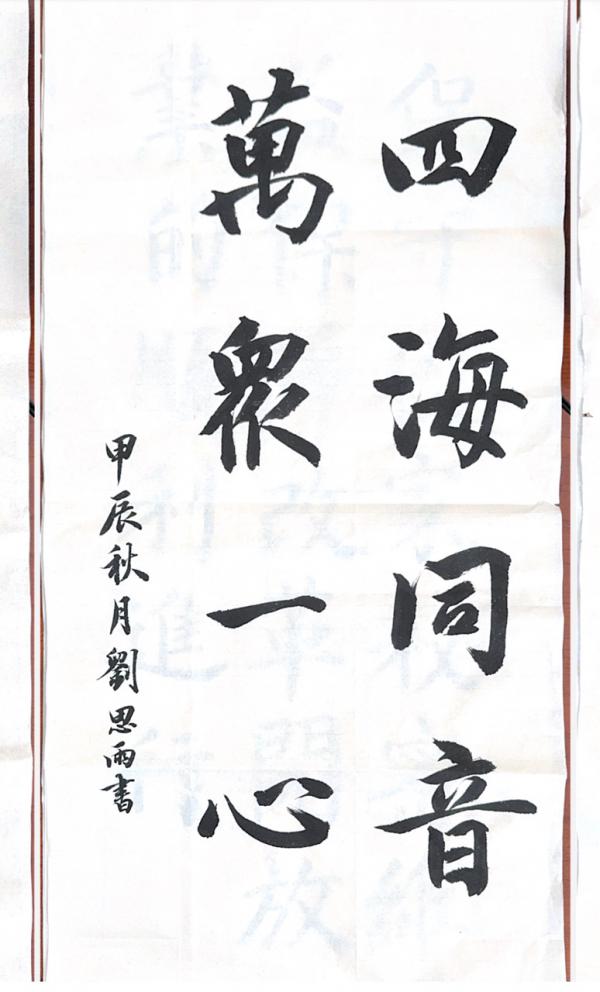 四海同音
萬衆一心
甲辰秋月劉思雨書